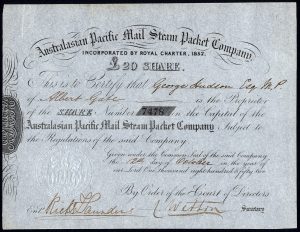 Australasian Pacific Mail Steam Packet Company
INCORPORATED BY ROYAL CHARTER, 1852.
£20 SHARE.
This is to Certify that George Hudson Esq M.P
of Albert Gate is the Proprietor
of the SHARE Number 7478 in the Capital of the
Australasian Pacific Mail Steam Packet Company, Subject to
the Regulations of the said Company
Given under the Common Seal of the said Company
this day of October in the year of
our Lord One thousand eight hundred and fifty two
By Order of the Court of Directors
Secretary